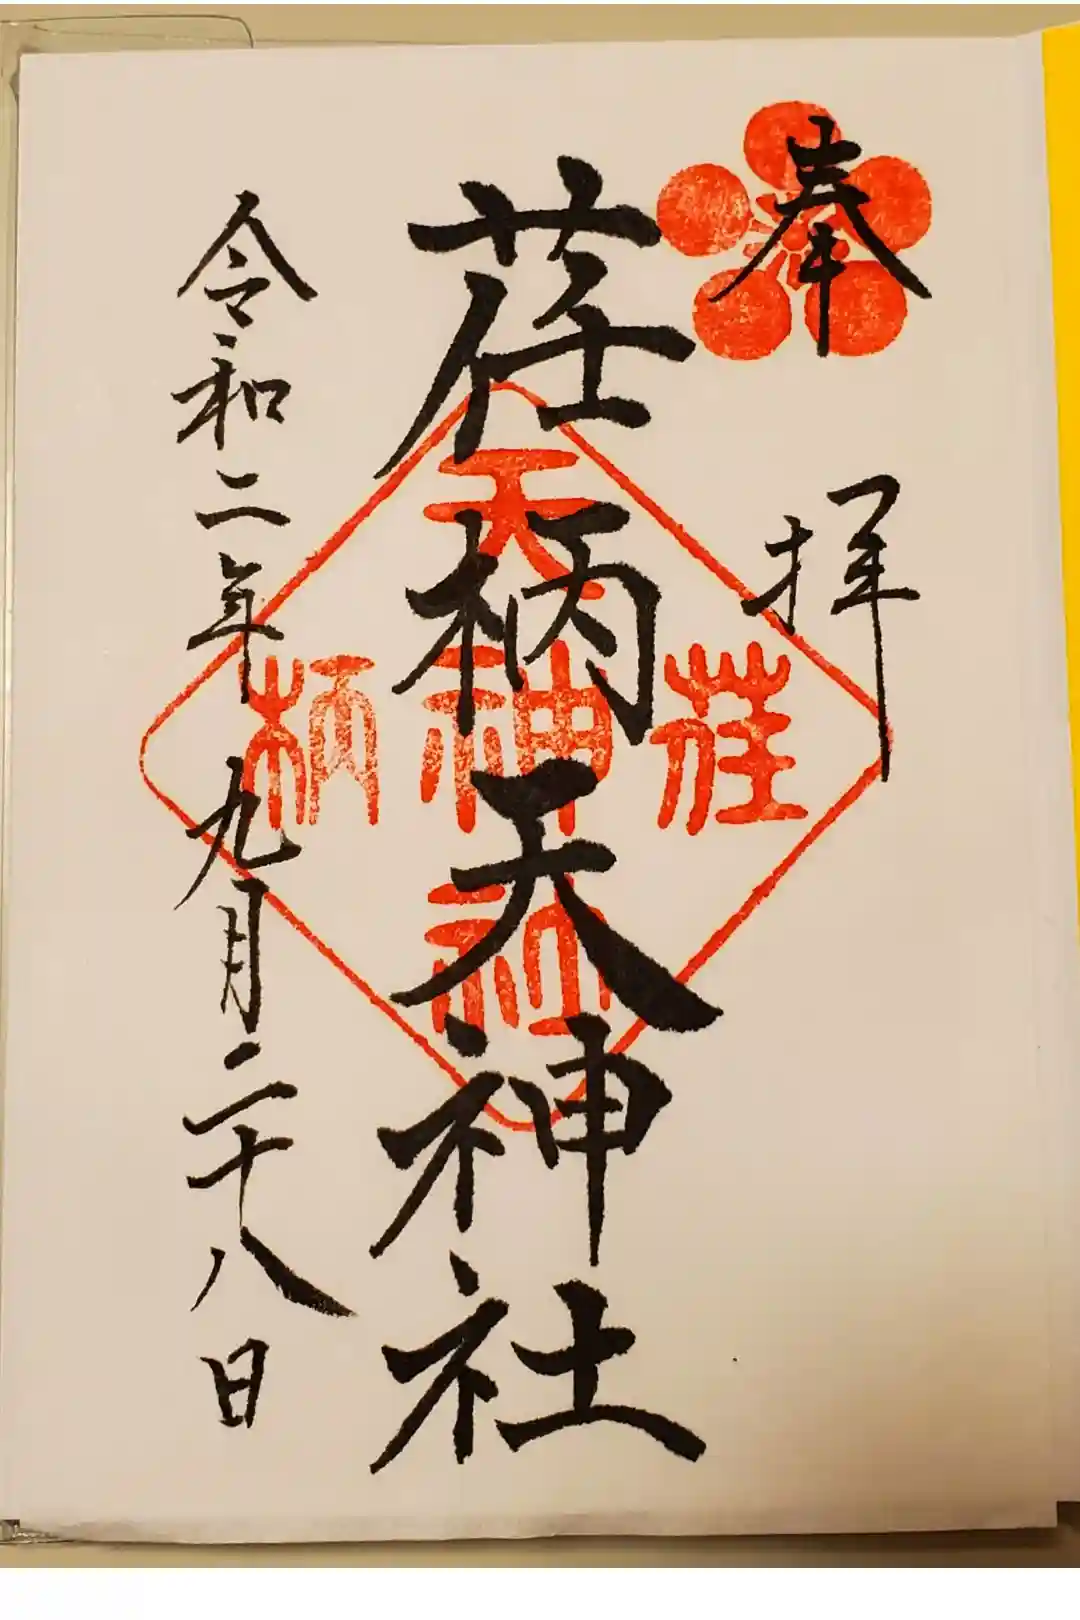 奉拝
荏柄天神社
令和二年九月二十八日
天
荏神柄
社